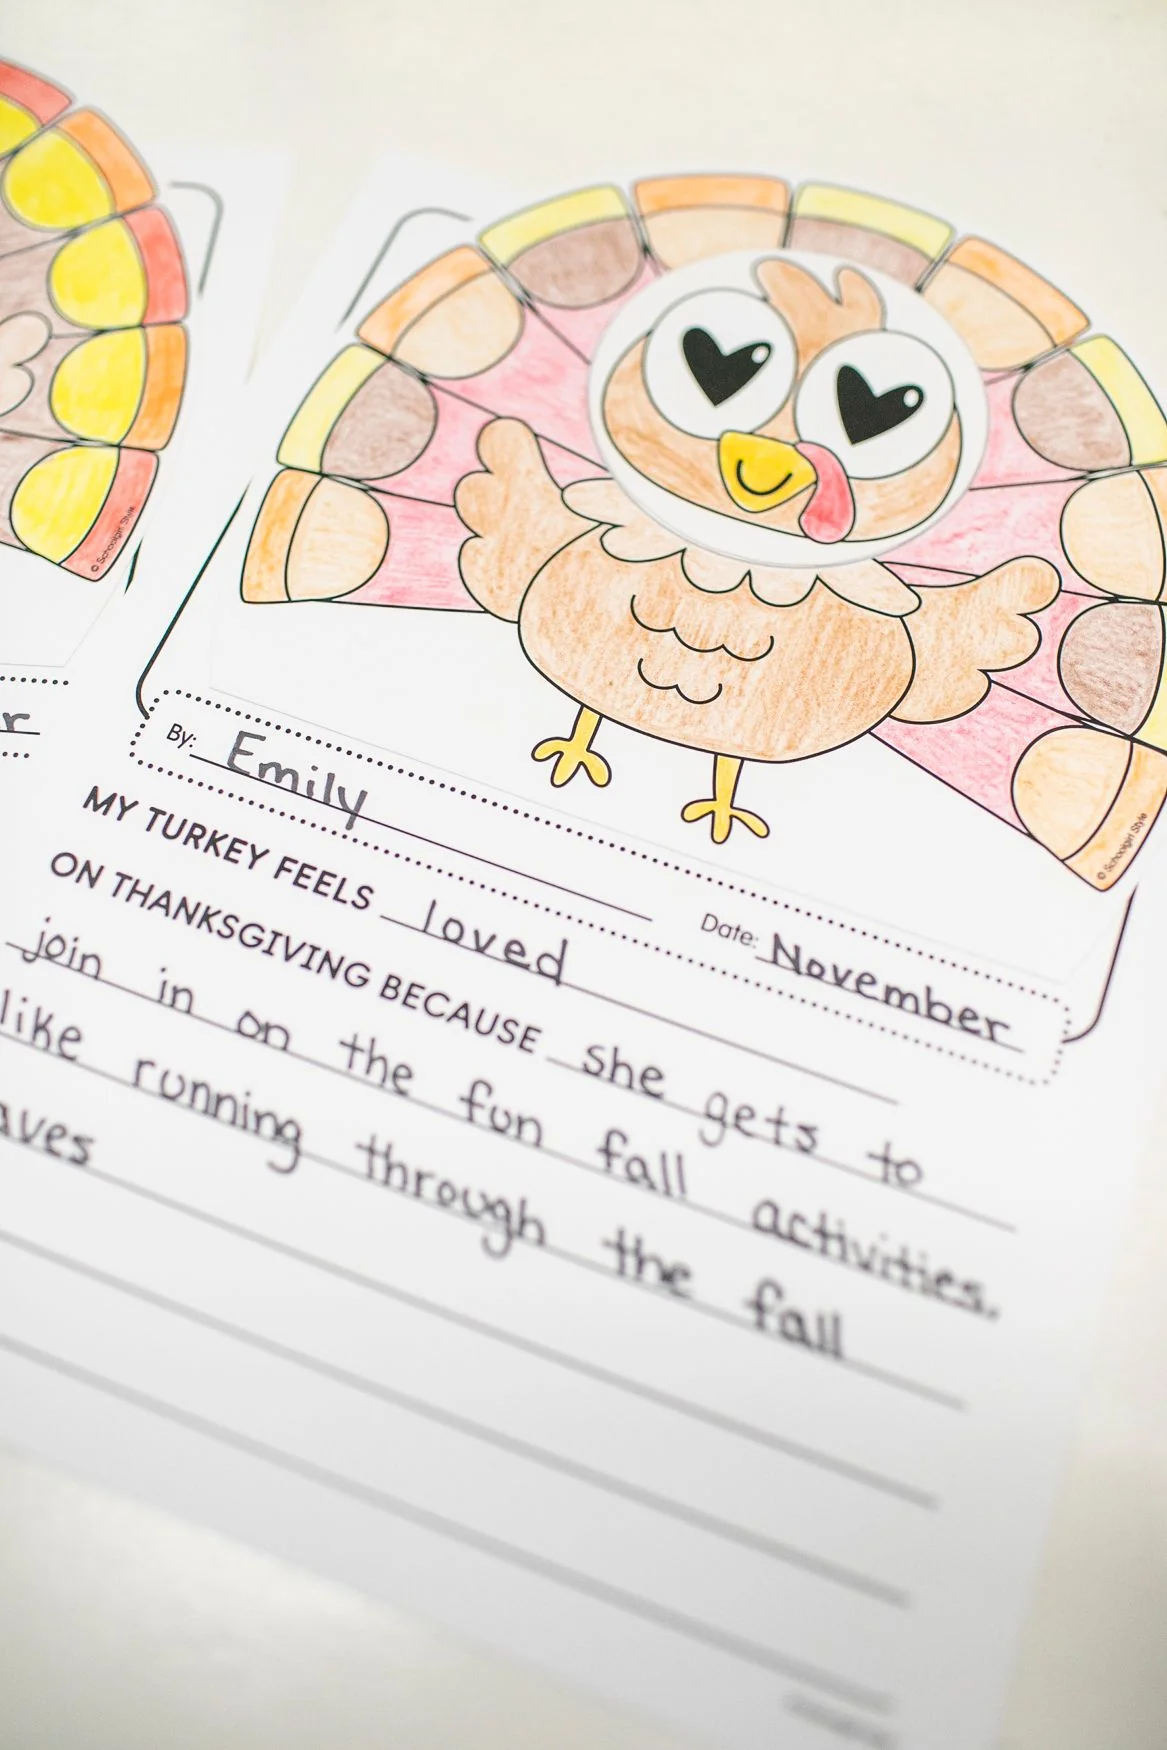 © Schoolgirl Style
© Schoolgirl Style
r
By: Emily Date: November
MY TURKEY FEELS loved
ON THANKSGIVING BECAUSE she gets to
join in on the fun fall activities.
like running through the fall
aves